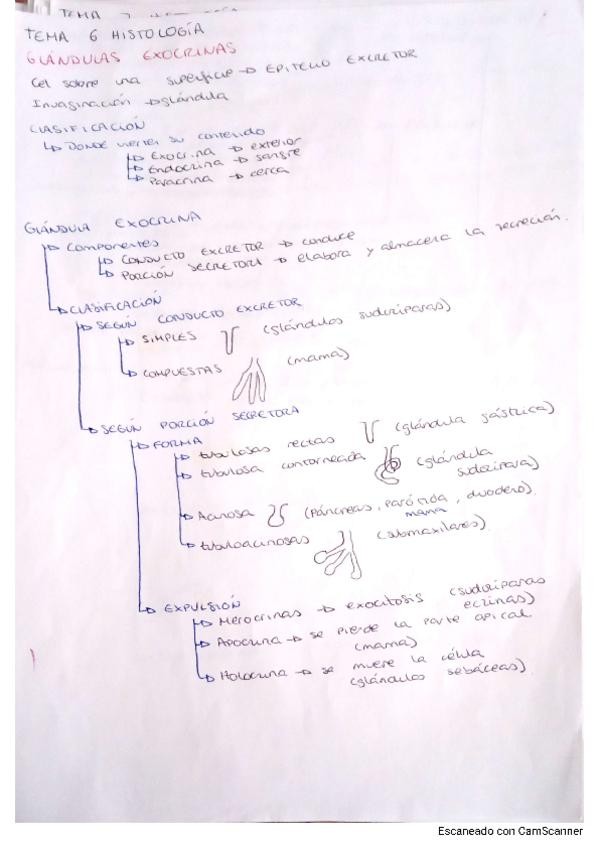 TEMA 7
TEMA 6 HISTOLOGÍA
GLÁNDULAS EXOCRINAS
Cel sobre una superficie → EPITELIO EXCRETOR
Invaginación → glándula
CLASIFICACIÓN
↳ DONDE vierten su contenido
↳ Exocrina → exterior
↳ Endocrina → sangre
↳ Paracrina → cerca
GLÁNDULA EXOCRINA
↳ Componentes
↳ CONDUCTO EXCRETOR → conduce
↳ PORCIÓN SECRETORA → elabora y almacena la secreción.
↳ CLASIFICACIÓN
↳ SEGÚN CONDUCTO EXCRETOR
↳ SIMPLES (glándulas sudoríparas)
↳ COMPUESTAS (mama)
↳ SEGÚN PORCIÓN SECRETORA
↳ FORMA
↳ tubulosas rectas (glándula gástrica)
↳ tubulosa contorneada (glándula
sudorípara)
↳ Acinosa (páncreas, parótida, duodeno)
mama
↳ tubuloacinosas (submaxilares)
↳ EXPULSIÓN
↳ Merocrinas → exocitosis (sudoríparas
ecrinas)
↳ Apocrina → se pierde la parte apical
(mama)
↳ Holocrina → se muere la célula
(glándulas sebáceas)
Escaneado con CamScanner